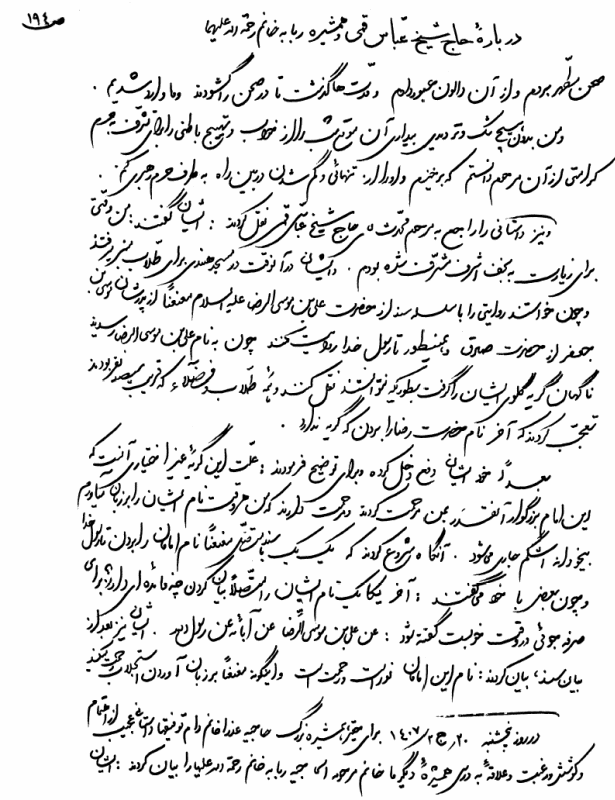 ص ۱۹٤
دربارهٔ حاج شیخ عباس قمی و همشیره ربابه خانم رحمة الله علیهما
صحن مطهر بردم و از آن دالون عبور دادم و مدت‌ها گذشت تا در صحن را گشودند و ما وارد شدیم.
و من بدون هیچ شک و تردیدی بیداری آن موقع شب را از خواب و تهییج باطنی را برای تشرّف به حرم
کرامتی از آن مرحوم دانستم که برخیزم و او را از تنهائی و گم شدن در بین راه به طرف حرم رهبری کنم.
و نیز داستانی را راجع به مرحوم محدث حاج شیخ عباس قمی نقل کردند: ایشان گفتند: من وقتی
برای زیارت به نجف اشرف مشرّف شده بودم. و ایشان در آنوقت در مسجد هندی برای طلّاب منبر میرفتند
و چون خواستند روایتی را با سلسله سند از حضرت علی بن موسی الرضا علیه السلام معنعناً از پدرشان موسی بن
جعفر از حضرت صادق و همینطور تا رسول خدا روایت کنند چون به نام علی بن موسی الرضا رسیدند
ناگهان گریه گلوی ایشان را گرفت بطوریکه نتوانستند نقل کنند و همهٔ طلّاب و فضلاء که قریب سیصد نفر بودند
تعجّب کردند که آخر نام حضرت رضا را بردن که گریه ندارد.
بعداً خود ایشان دفع دخل کرده و برای توضیح فرمودند: علّت این گریهٔ غیر اختیاری آنست که
این امام بزرگوار آنقدر بمن مرحمت کردند و مرحمت دارند که من هر وقت نام ایشان را بر زبان میآورم
بیخود از اشکم جاری می‌شود. آنگاه شروع کردند که یک یک با سند متصل معنعناً نام امامان را بردن تا رسول خدا
و چون بعضی با خود میگفتند: آخر یکایک نام ایشان را مفصّلاً بیان کردن چه فائده‌ای دارد، برای
صرفه جوئی در وقت خوبست گفته شود: عن علی بن موسی الرّضا عن آبائه عن رسول الله. ایشان نیز بعد از
بیان سند، بیان کردند: نام این امامان نور است و رحمت است و اینگونه معنعناً بر زبان آوردن استجلاب رحمت میکند
در روز پنجشنبه ۲۰ ج ۲ ۱۴۰۷ برای حقیر همشیره بزرگ حاجیه عذرا خانم دام توفیقها داستان عجیب از اهتمام
و کوشش و رغبت و علاقهٔ به درس همشیرهٔ دیگر ما خانم مرحومه حاجیه ربابه خانم رحمة الله علیها را بیان کردند: ایشان